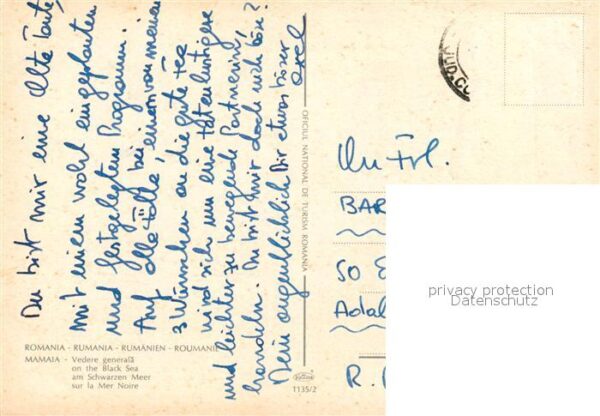 Du bist mir eine alte Tante,
mit einem wohl eingeplanten
und festgelegten Programm.
Auf alle Fälle, einem von meinen
3 Wünschen an die gute Fee
wird sich um eine tatenlustigere
und leichter zu bewegende Partnerin
handeln. Du bist mir doch nich bös?
Dein augenblicklich Dir etwas böser
Axel
OFICIUL NATIONAL DE TURISM ROMANIA
ROMANIA - RUMANIA - RUMÄNIEN - ROUMANIE
MAMAIA - Vedere generală
on the Black Sea
am Schwarzen Meer
sur la Mer Noire
1135/2
An Frl.
BAR
50
Adal
R.
privacy protection
Datenschutz